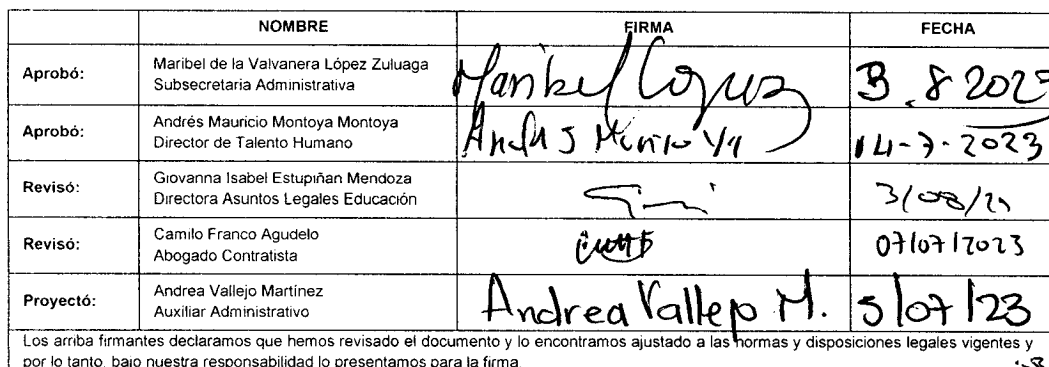 NOMBRE FIRMA FECHA
Aprobó: Maribel de la Valvanera López Zuluaga
Subsecretaria Administrativa
Maribel López 3.8 2023
Aprobó: Andrés Mauricio Montoya Montoya
Director de Talento Humano
14-7-2023
Revisó: Giovanna Isabel Estupiñan Mendoza
Directora Asuntos Legales Educación
Revisó: Camilo Franco Agudelo
Abogado Contratista
07/07/2023
Proyectó: Andrea Vallejo Martínez
Auxiliar Administrativo
Andrea Vallejo M. 5/07/23
Los arriba firmantes declaramos que hemos revisado el documento y lo encontramos ajustado a las normas y disposiciones legales vigentes y
por lo tanto, bajo nuestra responsabilidad lo presentamos para la firma.